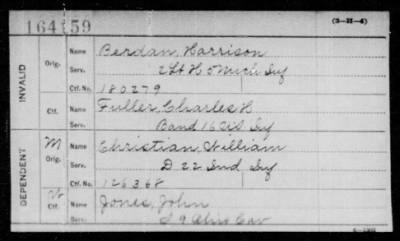 (3-21-4)
164159
INVALID
Orig.
Name Berdan, Harrison
Serv. 2 Lt H 5 Mich Inf
Ctf. No. 180279
Ctf.
Name Fuller, Charles H
Serv. Band 16 Inf
DEPENDENT
M
Orig.
Name Christian, William
Serv. D 22 Ind Inf
Ctf. No. 126368
Ctf.
Name Jones, John
Serv. I 9 Ohio Cav